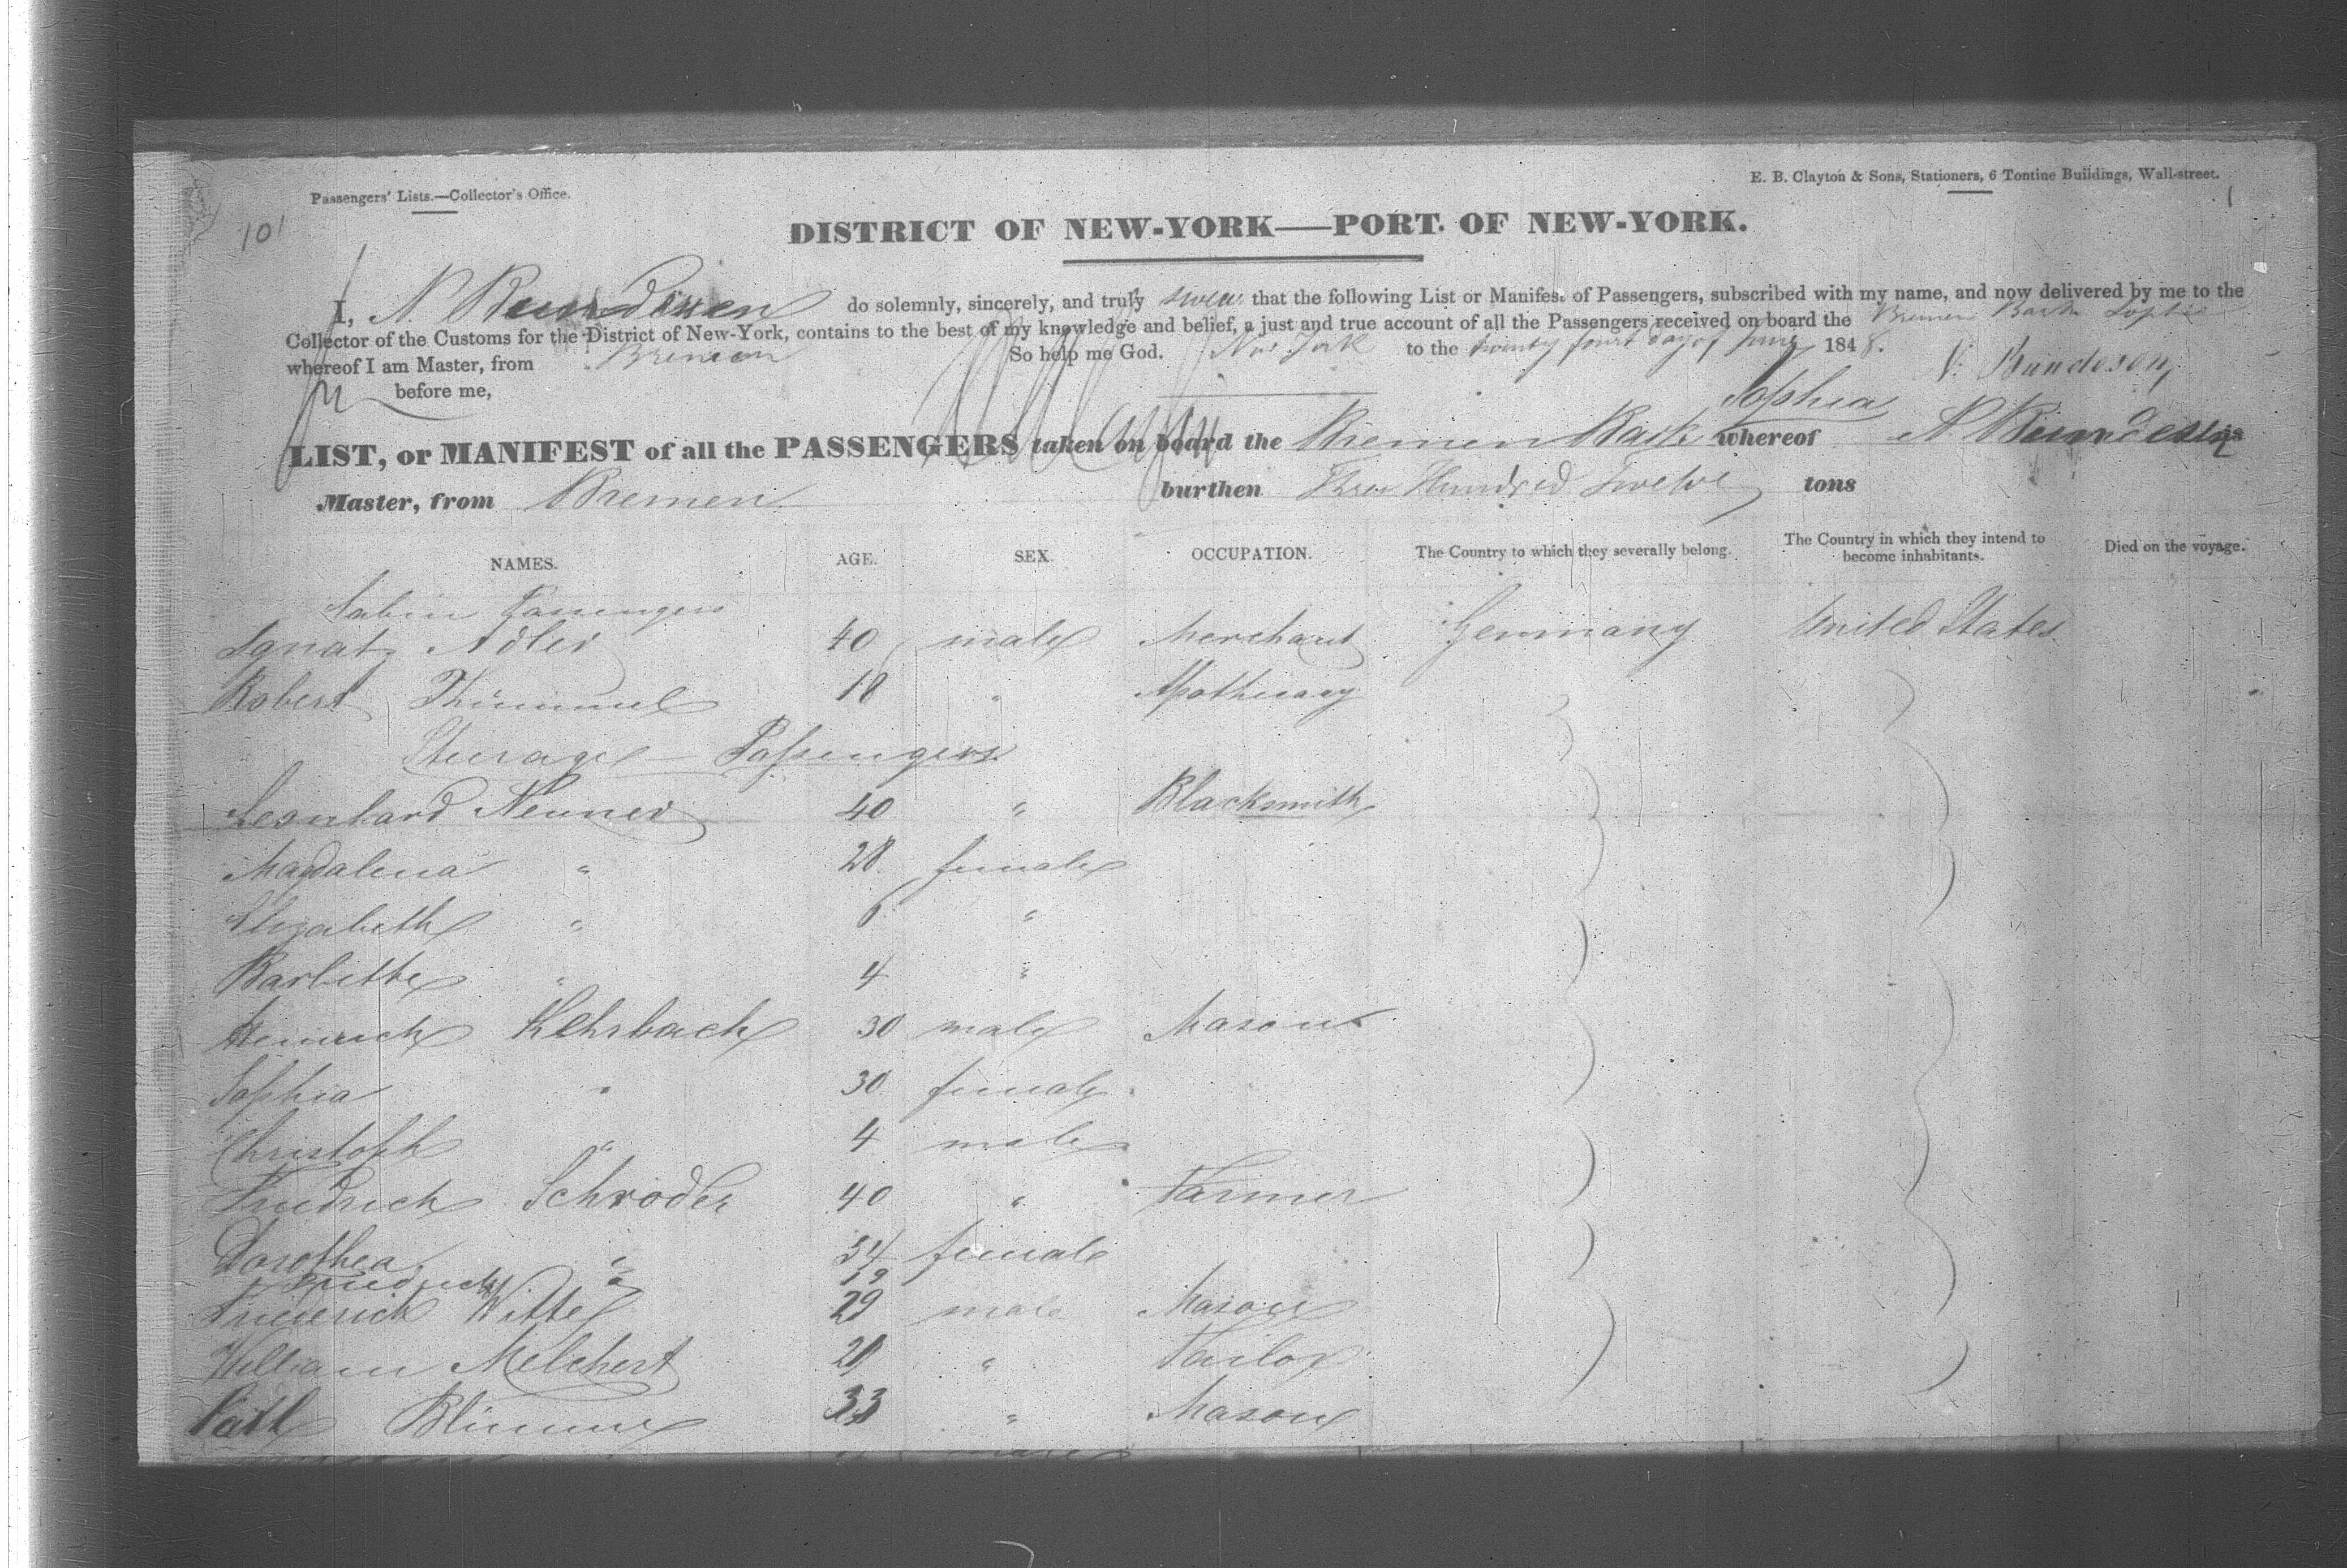 Passengers' Lists.—Collector's Office.
E. B. Clayton & Sons, Stationers, 6 Tontine Buildings, Wall-street.
101
DISTRICT OF NEW-YORK—PORT OF NEW-YORK.
I, N. Bundesen do solemnly, sincerely, and truly swear that the following List or Manifest of Passengers, subscribed with my name, and now delivered by me to the
Collector of the Customs for the District of New-York, contains to the best of my knowledge and belief, a just and true account of all the Passengers received on board the Bremen Bark Sophie
whereof I am Master, from Bremen So help me God. New York to the twenty fourth day of June 1848.
N. Bundesen
before me,
Sophia
LIST, or MANIFEST of all the PASSENGERS taken on board the Bremen Bark whereof N Bundesen is
Master, from Bremen burthen Three Hundred Twelve tons
NAMES. AGE. SEX. OCCUPATION. The Country to which they severally belong. The Country in which they intend to become inhabitants. Died on the voyage.
Cabin Passengers
Ignatz Adler 40 male Merchant Germany United States
Robert Thümmel 18 " Apothecary
Steerage Passengers
Leonhard Neuner 40 " Blacksmith
Magdalena " 28 female
Elizabeth " 6 "
Barbette " 4 "
Heinrich Kehrbach 30 male Mason
Sophia " 30 female
Christoph " 4 male
Friedrich Schroder 40 " Farmer
Dorothea " 34 female
Friedrich " 19
Frederick Witte 29 male Mason
William Melchert 21 " Tailor
33 " Mason